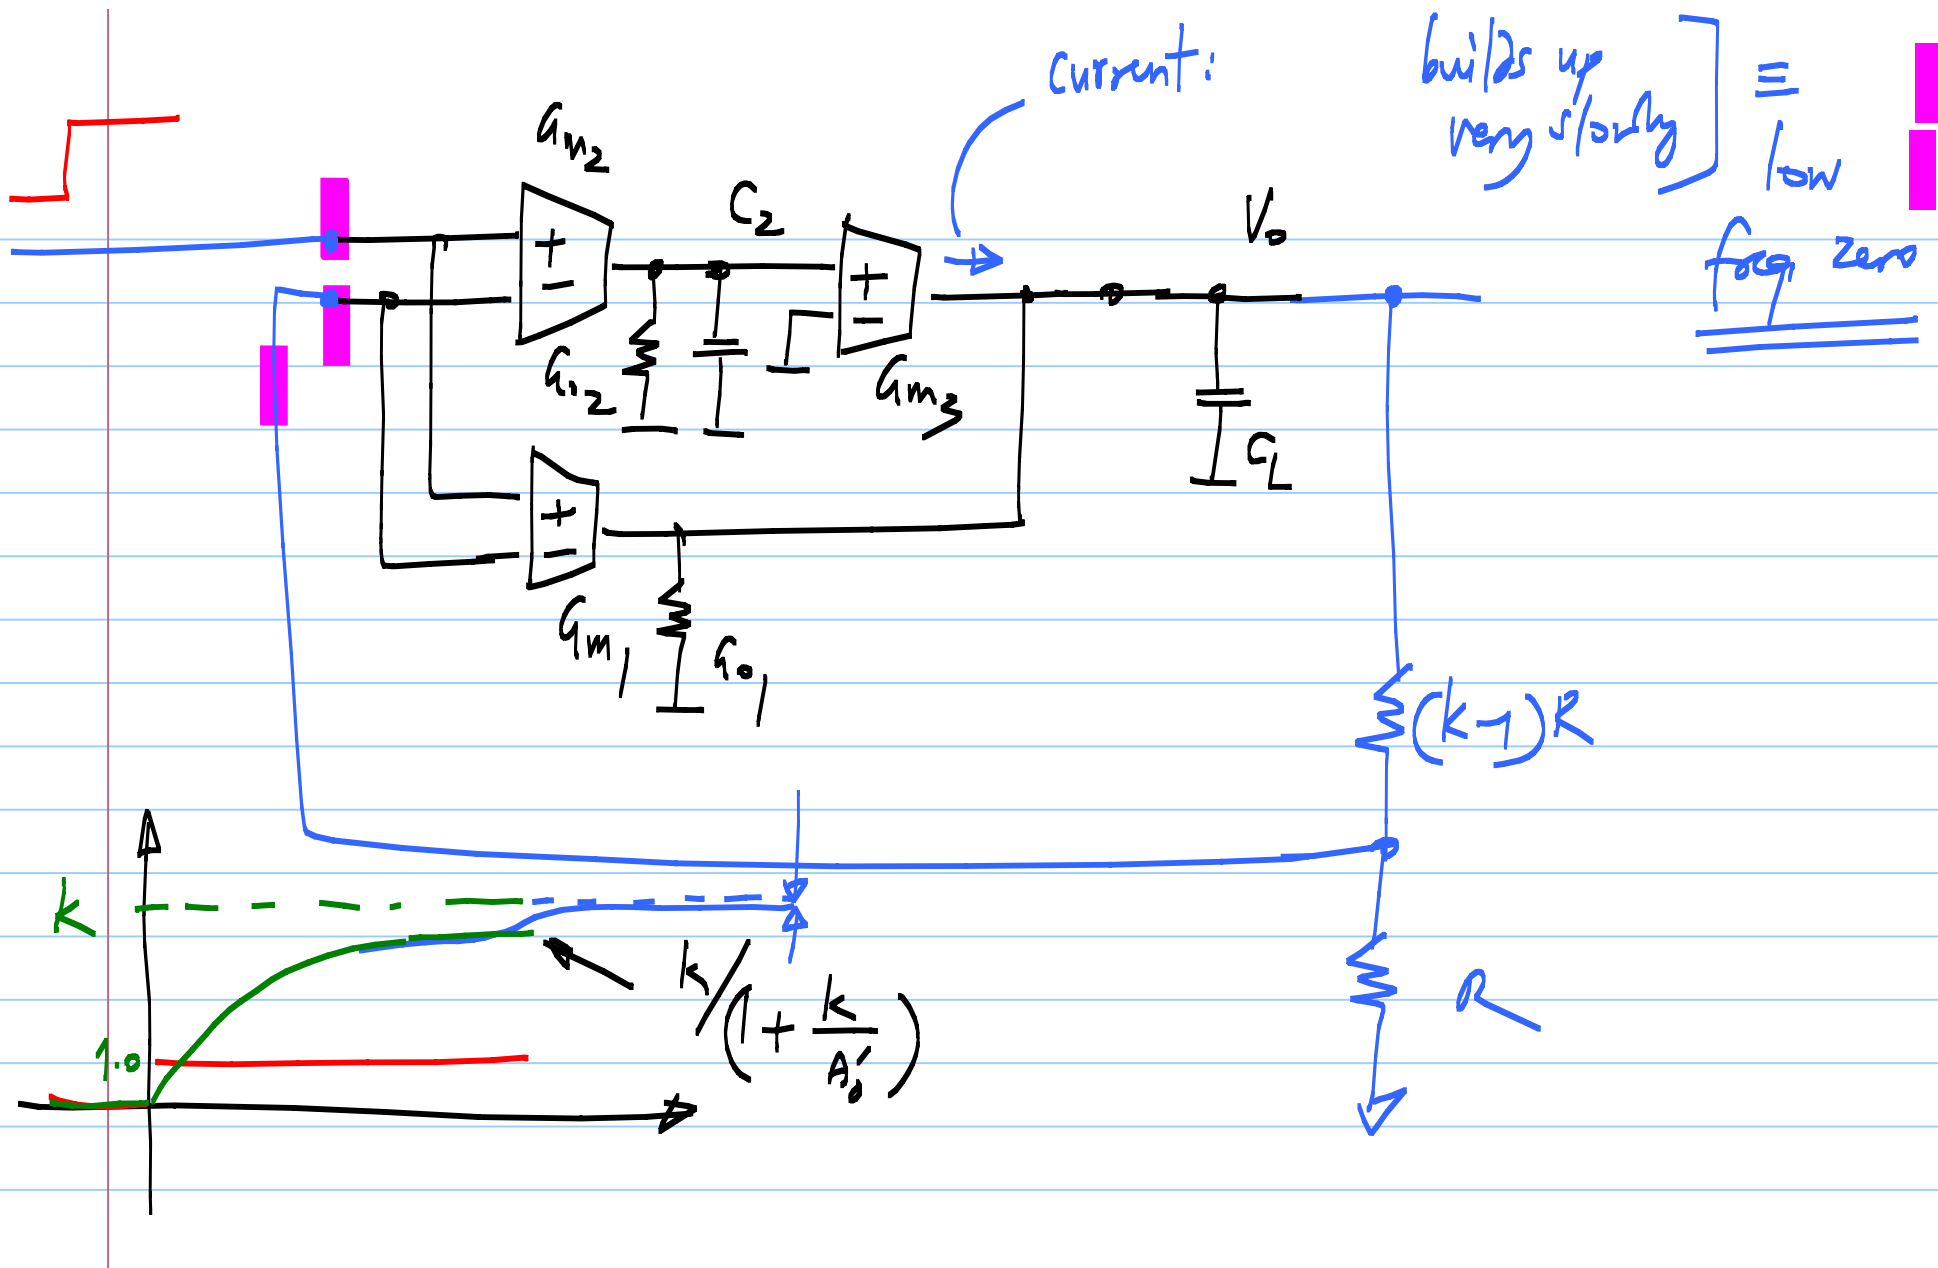 current:
builds up
very slowly
≡
low
freq zero
Gm2
C2
V0
+
−
+
−
Go2
Gm3
CL
+
−
Gm1
Go1
(k-1)R
k
k/(1 + k/A0')
R
1.0